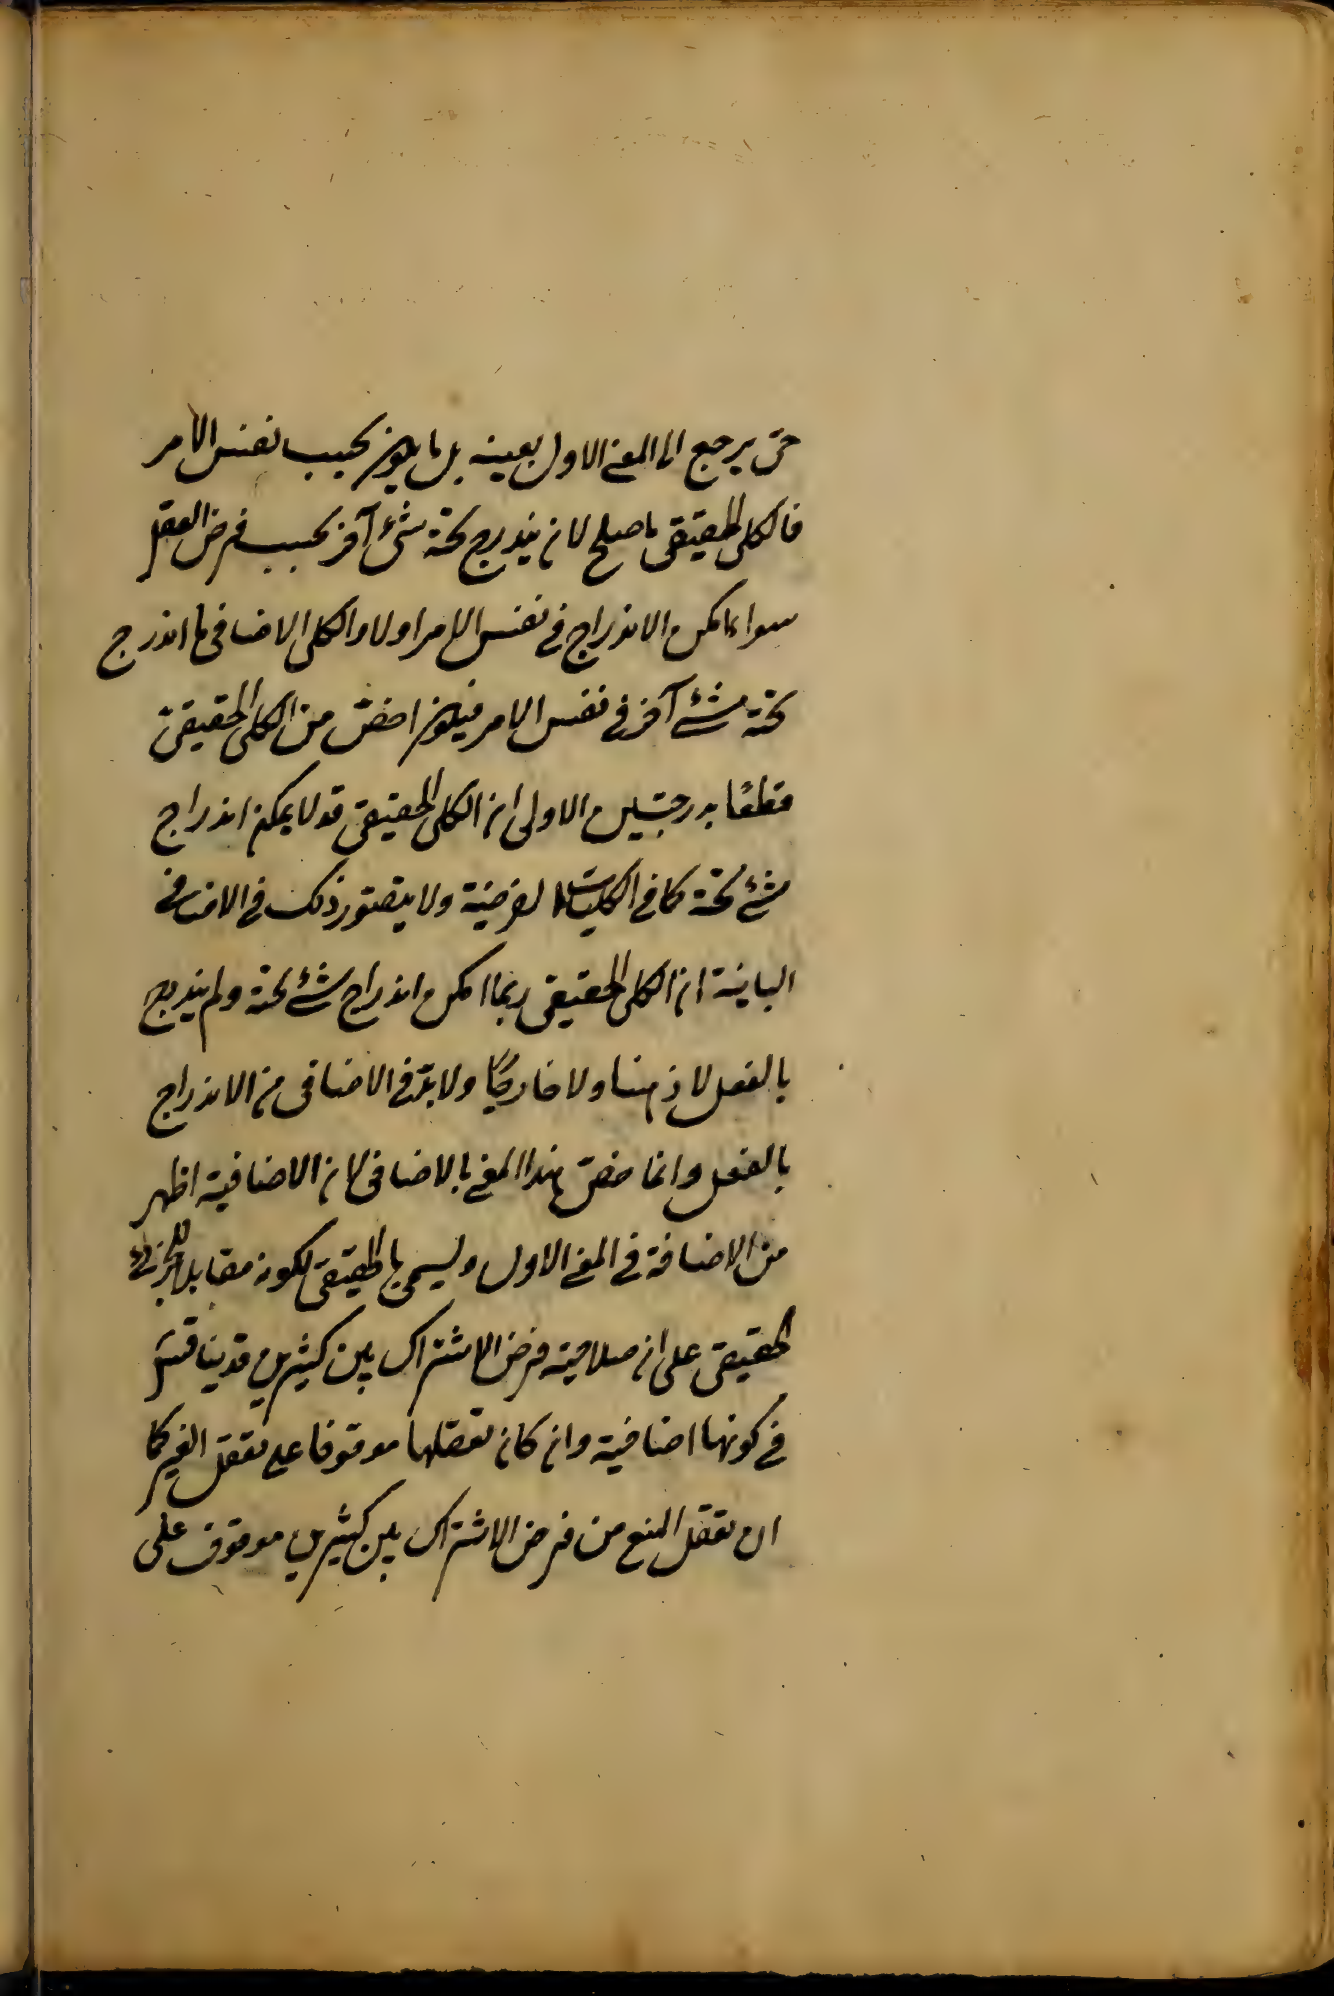 حتى يرجع الى المعنى الاول بعينه بل ما يكون بحسب نفس الامر
فالكلى الحقيقى ما صلح لان يندرج تحته شئ آخر بحسب فرض العقل
سواء امكن الاندراج فى نفس الامر اولا والكلى الاضافى ما اندرج
تحته شئ آخر فى نفس الامر فيكون اخصّ من الكلى الحقيقى
قطعًا بدرجتين الاولى ان الكلى الحقيقى قد لا يمكن اندراج
شئ تحته كما فى الكليات الفرضية ولا يتصوّر ذلك فى الاضافى
الثانية ان الكلى الحقيقى ربما امكن اندراج شئ تحته ولم يندرج
بالفعل لا ذهنا ولا خارجًا ولا بدّ فى الاضافى من الاندراج
بالفعل وانما خصّ هذا المعنى بالاضافى لان الاضافية اظهر
من الاضافة فى المعنى الاول ويسمى بالحقيقى لكونه مقابلا للجزئى
الحقيقى على ان صلاحية فرض الاشتراك بين كثيرين قد يناقش
فى كونها اضافية وان كان تعقلها موقوفا على تعقل الغير كما
ان تعقل المنع من فرض الاشتراك بين كثيرين موقوف على